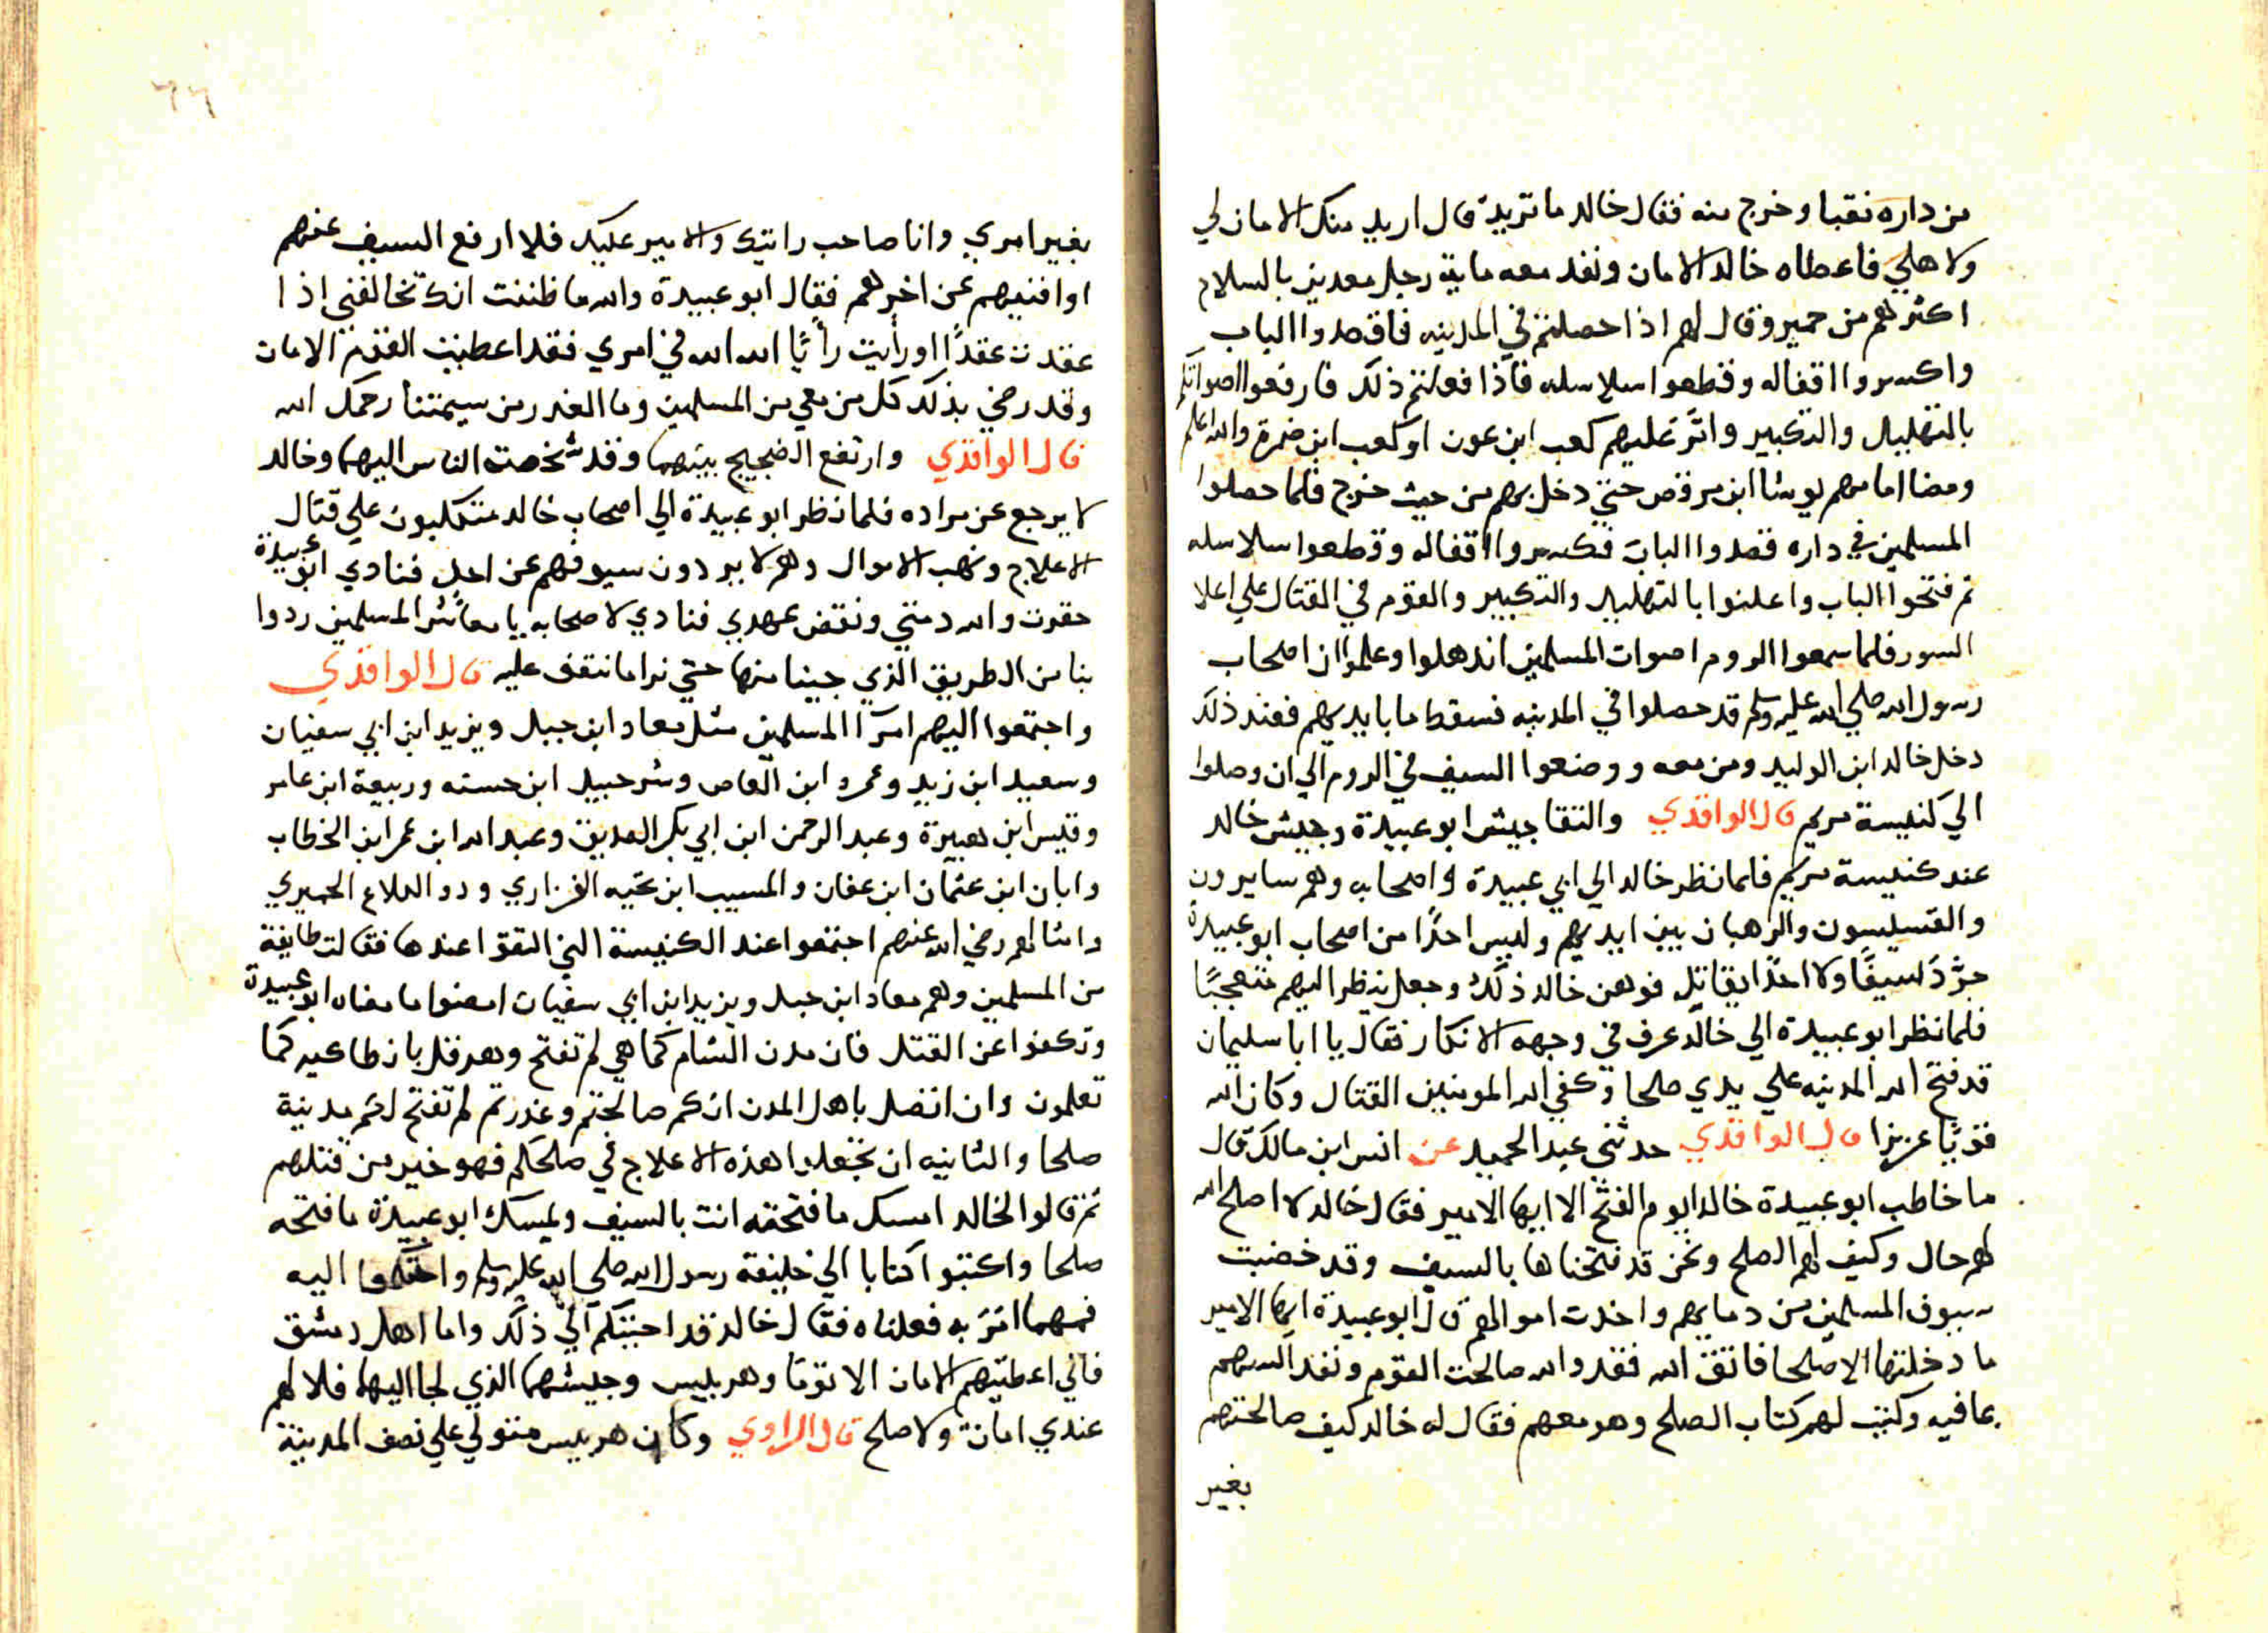 من داره نقبا وخرج منه فقال خالد ما تريد قال اريد منك الامان لي
ولاهلي فاعطاه خالد الامان ونفد معه ماية رجل معدين بالسلاح
اكثرهم من حمير وقال لهم اذا حصلتم في المدينه فاقصدوا الباب
واكسروا اقفاله وقطعوا سلاسله فاذا فعلتم ذلك فارفعوا اصواتكم
بالتهليل والتكبير وامّر عليهم كعب ابن عون او كعب ابن ضمرة والله اعلم
ومضا امامهم يوشا ابن مرقص حتي دخل بهم من حيث خرج فلما حصلوا
المسلمين في داره قصدوا الباب فكسروا اقفاله وقطعوا سلاسله
ثم فتحوا الباب واعلنوا بالتهليل والتكبير والقوم في القتال علي اعلا
السور فلما سمعوا الروم اصوات المسلمين اندهلوا وعلموا ان اصحاب
رسول الله صلي الله عليه وسلم قد حصلوا في المدينه فسقط ما بايديهم فعند ذلك
دخل خالد ابن الوليد ومن معه ووضعوا السيف في الروم الي ان وصلوا
الي كنيسة مريم قال الواقدي والتقا جيش ابو عبيدة وجيش خالد
عند كنيسة مريم فلما نظر خالد الي ابي عبيدة واصحابه وهم سايرون
والقسيسون والرهبان بين ايديهم وليس احدًا من اصحاب ابو عبيدة
جرّد سيفًا ولا احدًا يقاتل فوهن خالد ذلك وجعل ينظر اليهم متعجبًا
فلما نظر ابو عبيدة الي خالد عرف في وجهه الانكار فقال يا ابا سليمان
قد فتح الله المدينه علي يدي صلحا وكفي الله المومنين القتال وكان الله
قويًا عزيزا قال الواقدي حدثني عبد الحميد عن انس ابن مالك قال
ما خاطب ابو عبيدة خالد يوم الفتح الا ايها الامير فقال خالد لا اصلح الله
لهم حال وكيف لهم الصلح ونحن قد فتحناها بالسيف وقد خضبت
سيوف المسلمين من دمايهم واخدت اموالهم قال ابو عبيدة ايها الامير
ما دخلتها الا صلحا فاتق الله فقد والله صالحت القوم ونفد السهم
بما فيه وكتبت لهم كتاب الصلح وهو معهم فقال له خالد كيف صالحتهم
بغير
٦٦
بغير امري وانا صاحب رايتك والامير عليك فلا ارفع السيف عنهم
او افنيهم عن اخرهم فقال ابو عبيدة والله ما ظننت انك تخالفني اذا
عقدت عقدًا او رأيت رأيًا الله الله في امري فقد اعطيت القوم الامان
وقد رضي بذلك كل من معي من المسلمين وما الغدر من سيمتنا رحمك الله
قال الواقدي وارتفع الضجيج بينهما وقد شخصت الناس اليهما وخالد
لا يرجع عن مراده فلما نظر ابو عبيدة الي اصحاب خالد متكلبون علي قتال
الاعلاج ونهب الاموال وهم لا يردون سيوفهم عن احل فنادي ابو عبيدة
حقرت والله دمتي ونقض عهدي فنادي لاصحابه يا معاشر المسلمين ردوا
بنا من الطريق الذي جينا منها حتي نرا ما نتفق عليه قال الواقدي
واجتمعوا اليهم امرآ المسلمين مثل معاد ابن جبل ويزيد ابن ابي سفيان
وسعيد ابن زيد وعمرو ابن العاص وشرحبيل ابن حسنه وربيعة ابن عامر
وقيس ابن هبيرة وعبد الرحمن ابن ابي بكر الصديق وعبد الله ابن عمر ابن الخطاب
وابان ابن عثمان ابن عفان والمسيب ابن نجيه الفزاري ودو الكلاع الحميري
وامثالهم رضي الله عنهم اجتمعوا عند الكنيسة التي التقوا عندها فقالت طايفة
من المسلمين وهم معاد ابن جبل ويزيد ابن ابي سفيان امضوا ما مضاه ابو عبيدة
وتكفوا عن القتل فان مدن الشام كما هي لم تفتح وهرقل بانطاكيه كما
تعلمون وان اتصل باهل المدن انكم صالحتم وغدرتم لم تفتح لكم مدينة
صلحا والثانيه ان تجعلوا هذه الاعلاج في صلحكم فهو خير من قتلهم
ثم قالوا لخالد امسك ما فتحته انت بالسيف ويمسك ابو عبيدة ما فتحه
صلحا واكتبوا كتابا الي خليفة رسول الله صلي الله عليه وسلم واحتكموا اليه
فمهما امر به فعلناه فقال خالد قد اجبتكم الي ذلك واما اهل دمشق
فاني اعطيتهم الامان الا توما وهربيس وجيشهما الذي لجا اليهما فلا لهم
عندي امانة ولا صلح قال الراوي وكان هربيس متولي علي نصف المدينة